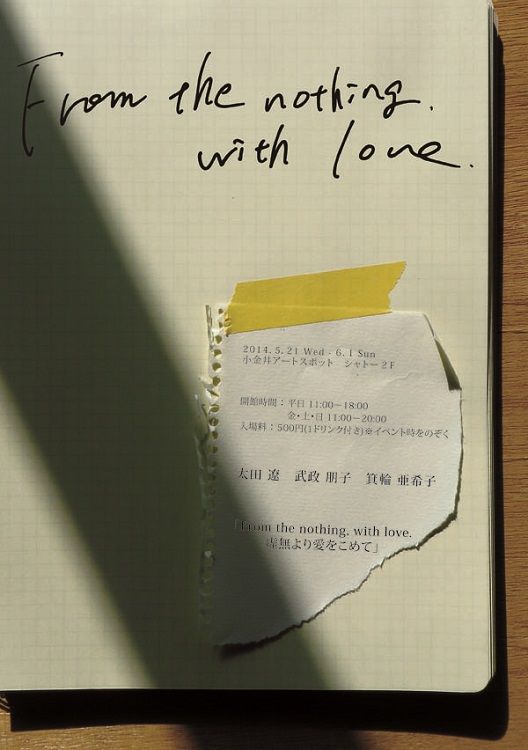 From the nothing.
with love.
2014. 5. 21 Wed - 6. 1 Sun
小金井アートスポット シャトー2F
開館時間：平日 11:00〜18:00
金・土・日 11:00〜20:00
入場料：500円(1ドリンク付き)※イベント時をのぞく
太田 遼 武政 朋子 箕輪 亜希子
「From the nothing. with love.
虚無より愛をこめて」